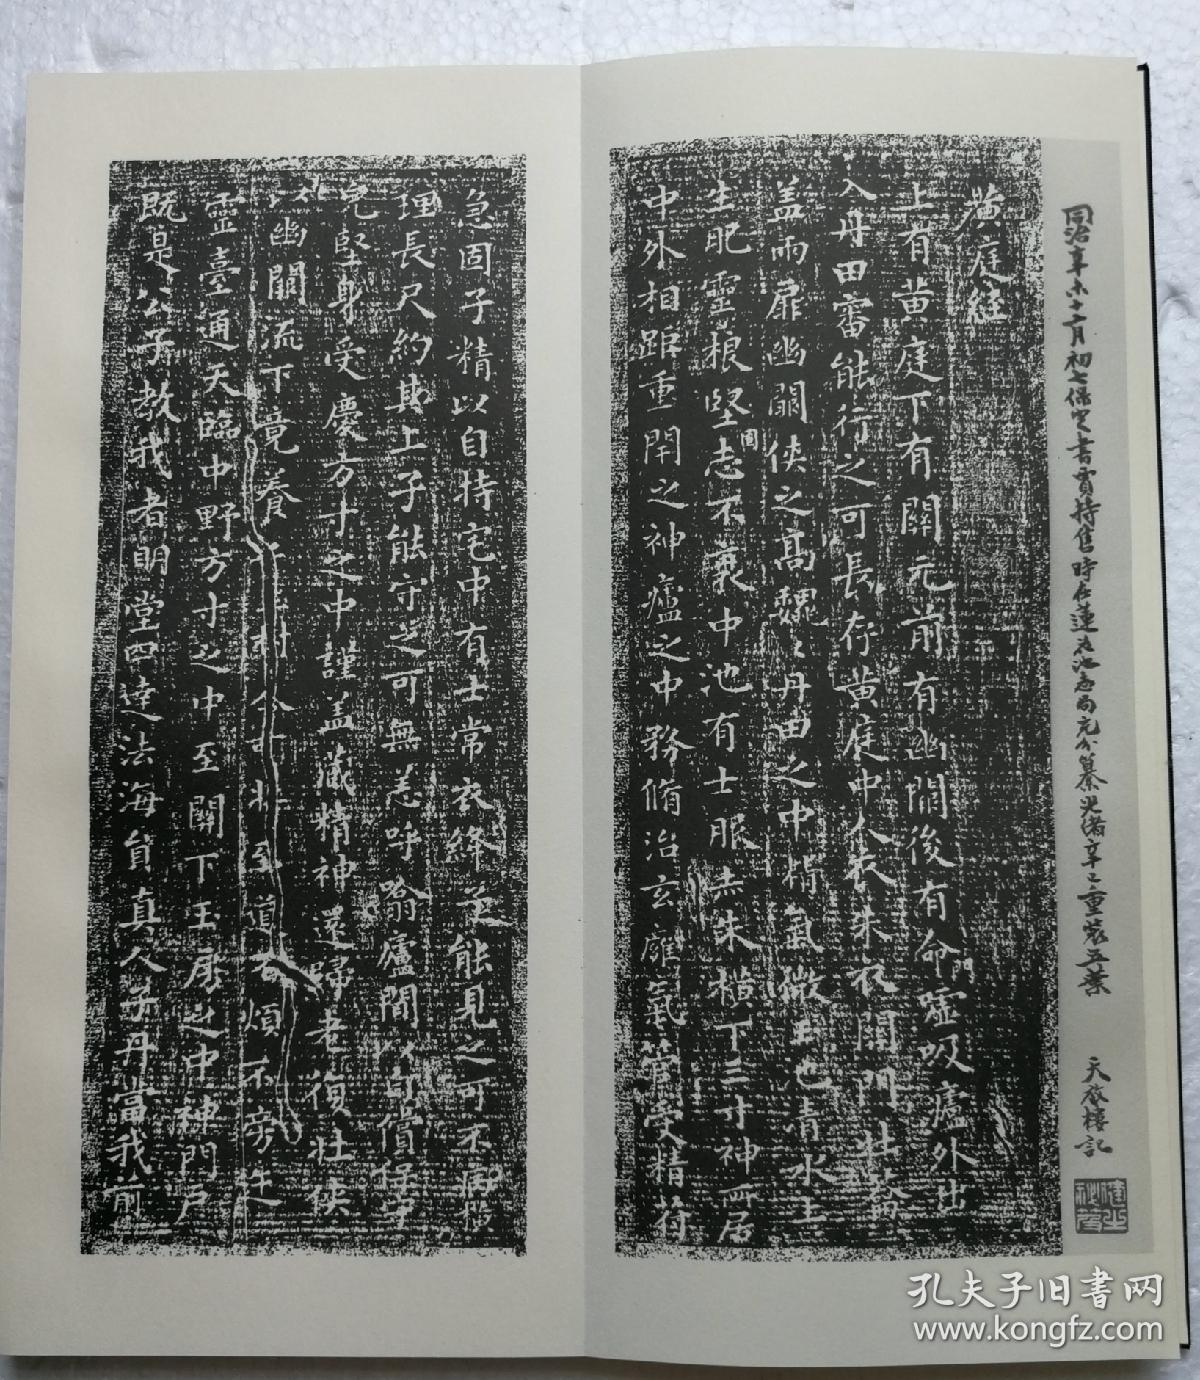 同治辛未十一月初七保定書賈持售時在蓮花池志局充分纂光緒辛巳重裝五葉 天放樓記
黃庭經
上有黃庭下有關元前有幽闕後有命門噓吸廬外出
入丹田審能行之可長存黃庭中人衣朱衣關門壯蘥
蓋兩扉幽闕俠之高魏〻丹田之中精氣微玉池清水上
生肥靈根堅固志不衰中池有士服赤朱橫下三寸神所居
中外相距重閉之神廬之中務脩治玄廱氣管受精符
急固子精以自持宅中有士常衣絳子能見之可不病橫
理長尺約其上子能守之可無恙呼噏廬間以自償保守
完堅身受慶方寸之中謹蓋藏精神還歸老復壯俠
以幽闕流下竟養子玉樹令可杖至道不煩不旁迕
靈臺通天臨中野方寸之中至關下玉房之中神門戶
既是公子教我者明堂四達法海員真人子丹當我前
孔夫子旧书网
www.kongfz.com